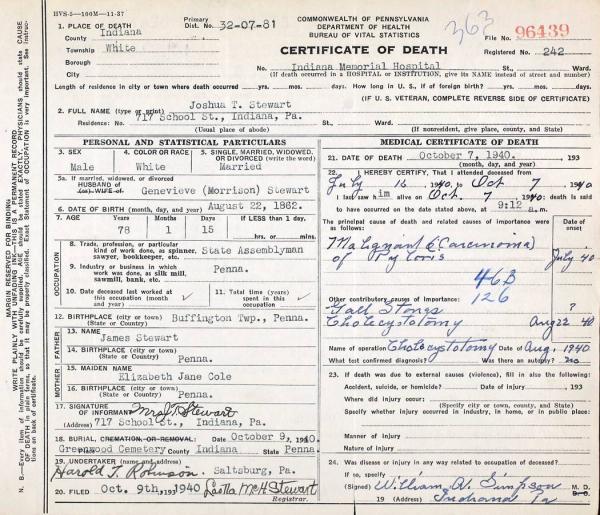 HVS-5—100M—11-37
COMMONWEALTH OF PENNSYLVANIA
DEPARTMENT OF HEALTH
BUREAU OF VITAL STATISTICS
CERTIFICATE OF DEATH
363
File No. 96439
Registered No. 242
Primary Dist. No. 32-07-81
1. PLACE OF DEATH
County Indiana
Township White
Borough
City
No. Indiana Memorial Hospital St., Ward.
(If death occurred in a HOSPITAL or INSTITUTION, give its NAME instead of street and number)
Length of residence in city or town where death occurred yrs. mos. days. How long in U. S., if of foreign birth? yrs. mos. days.
(IF U. S. VETERAN, COMPLETE REVERSE SIDE OF CERTIFICATE)
2. FULL NAME (type or print) Joshua T. Stewart
Residence: No. 717 School St., Indiana, Pa. St., Ward.
(Usual place of abode) (If nonresident, give place, county, and State)
PERSONAL AND STATISTICAL PARTICULARS
3. SEX Male
4. COLOR OR RACE White
5. SINGLE, MARRIED, WIDOWED, OR DIVORCED (write the word) Married
5a. If married, widowed, or divorced
HUSBAND of (or) WIFE of Genevieve (Morrison) Stewart
6. DATE OF BIRTH (month, day, and year) August 22, 1862.
7. AGE Years 78 Months 1 Days 15 If LESS than 1 day, hrs. or min.
OCCUPATION
8. Trade, profession, or particular kind of work done, as spinner, sawyer, bookkeeper, etc. State Assemblyman
9. Industry or business in which work was done, as silk mill, sawmill, bank, etc. Penna.
10. Date deceased last worked at this occupation (month and year)
11. Total time (years) spent in this occupation
12. BIRTHPLACE (city or town) Buffington Twp., Penna.
(State or Country)
FATHER
13. NAME James Stewart
14. BIRTHPLACE (city or town) Penna.
(State or country)
MOTHER
15. MAIDEN NAME Elizabeth Jane Cole
16. BIRTHPLACE (city or town) Penna.
(State or Country)
17. SIGNATURE OF INFORMANT Mrs J. T. Stewart
(Address) 717 School St., Indiana, Pa.
18. BURIAL, CREMATION, OR REMOVAL: Date October 9, 1940
Greenwood Cemetery County Indiana State Penna.
19. UNDERTAKER (name and address)
Harold T. Robinson. Saltsburg, Pa.
20. FILED Oct. 9th, 193 1940 Leolla McH Stewart
Registrar.
MEDICAL CERTIFICATE OF DEATH
21. DATE OF DEATH October 7, 1940. , 193
(month, day, and year)
22. I HEREBY CERTIFY, That I attended deceased from
July 16 1940 to Oct 7 1940
I last saw him alive on Oct. 7 1940; death is said
to have occurred on the date stated above, at 9:12 a.m.
The principal cause of death and related causes of importance were as follows: Date of onset
Malignant (Carcinoma)
of Pyloris July 40
46B
126
Other contributory causes of importance:
Gall Stones ?
Cholecystotomy Aug 22 40
Name of operation Cholecystotomy Date of Aug, 1940
What test confirmed diagnosis? Was there an autopsy? no
23. If death was due to external causes (violence), fill in also the following:
Accident, suicide, or homicide? Date of injury , 193
Where did injury occur:
(Specify city or town, county, and State)
Specify whether injury occurred in industry, in home, or in public place.
Manner of injury
Nature of injury
24. Was disease or injury in any way related to occupation of deceased?
If so, specify
(Signed) William A. Simpson M. D.
19 (Address) Indiana Pa
MARGIN RESERVED FOR BINDING
WRITE PLAINLY WITH UNFADING INK—THIS IS A PERMANENT RECORD
N. B.—Every item of information should be carefully supplied. AGE should be stated EXACTLY. PHYSICIANS should state CAUSE
OF DEATH in plain terms, so that it may be properly classified. Exact Statement of OCCUPATION is very important. See instructions on back of certificate.